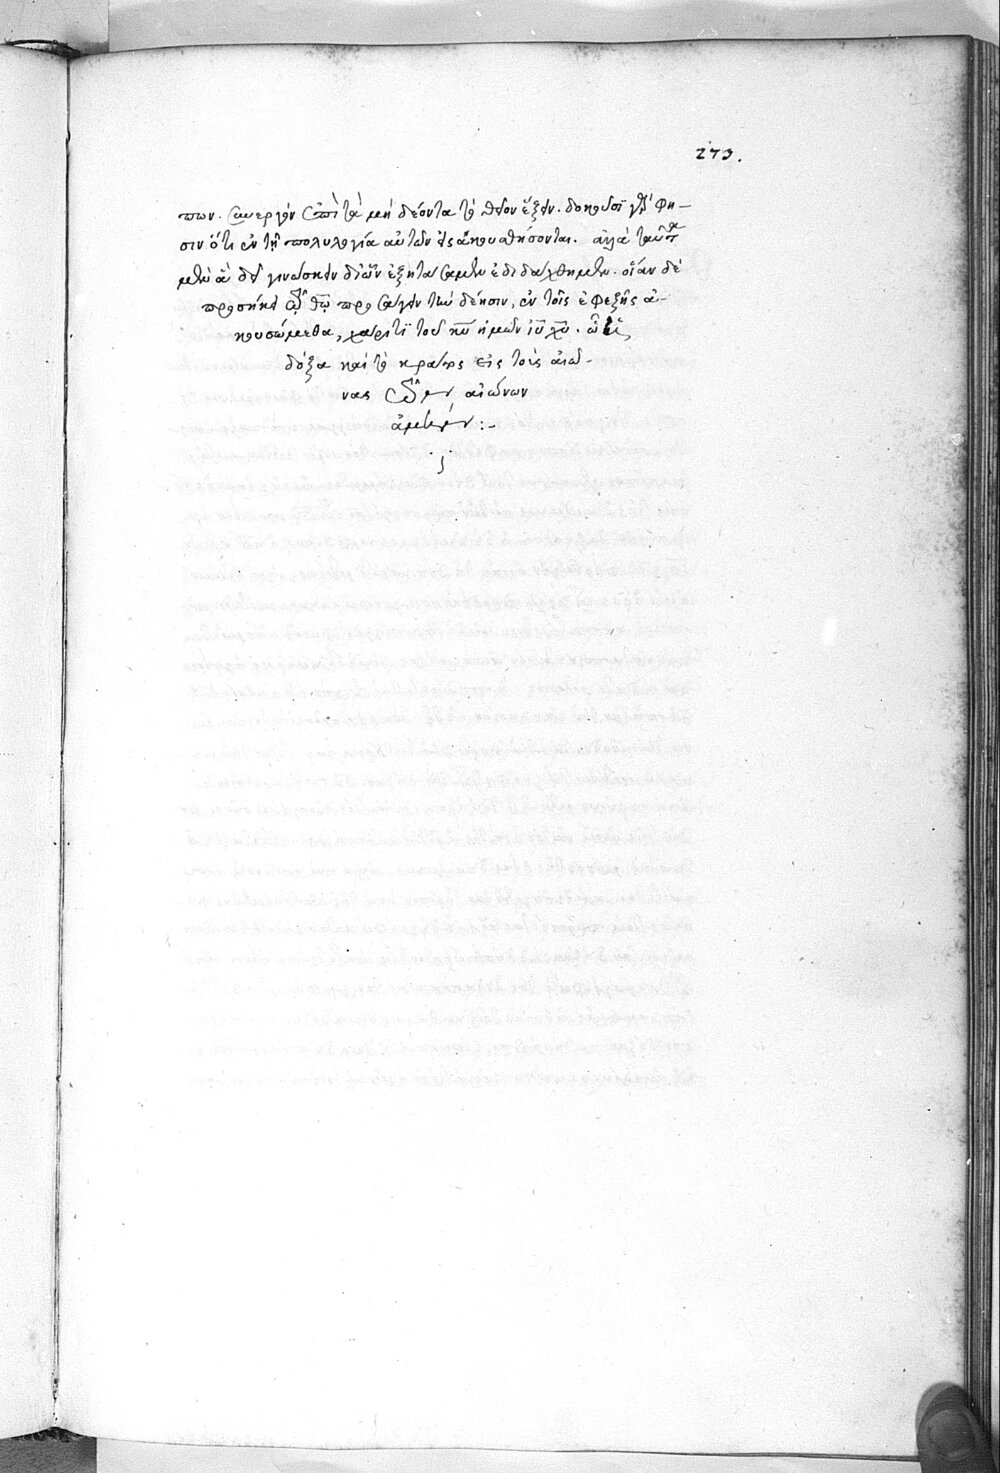 273.
πων. συνεργὸν ἐπὶ τὰ μὴ δέοντα τὸ θεῖον ἕξειν. δοκοῦσι γὰρ φη-
σιν ὅτι ἐν τῇ πολυλογία αὐτῶν εἰσακουσθήσονται. ἀλλὰ
μὲν ἃ δεῖ γινώσκειν δι' ὧν ἐξητάσαμεν ἐδιδάχθημεν. οἵαν δὲ
προσήκει τῷ θω προσαγειν τὴν δέησιν, ἐν τοῖς ἐφεξῆς ἀ-
κουσώμεθα, χάριτι τοῦ κυ ἡμῶν ιυ χυ. ᾧ
δόξα καὶ τὸ κράτος εἰς τοὺς αἰῶ-
νας τῶν αἰώνων
ἀμήν :-